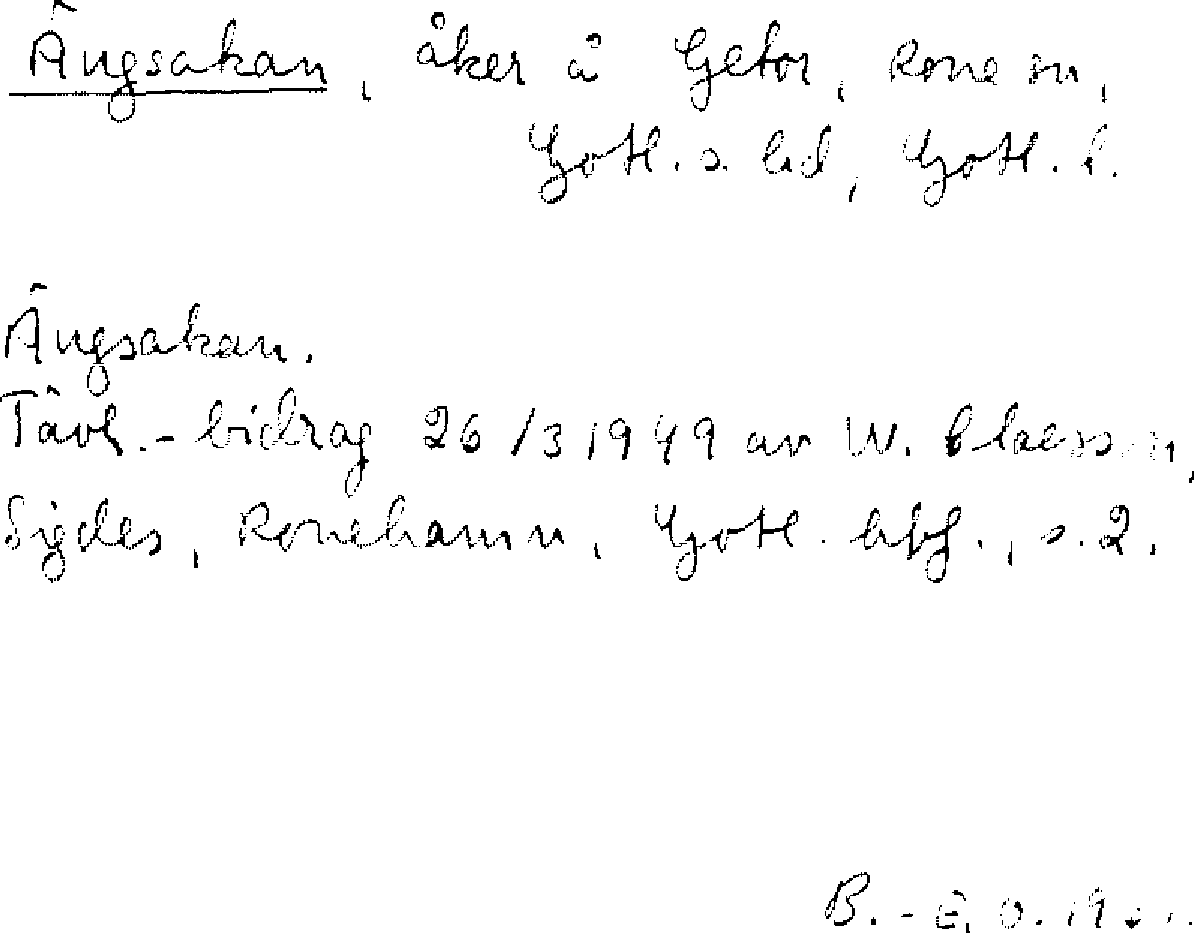 Ängsakan, åker å Getor, Rone sn,
Gotl. s. hd, Gotl. l.
Ängsakan.
Tävl.-bidrag 26/3 1949 av W. Claesson,
Sigdes, Ronehamn, Gotl. hbf., s. 2.
B.-E. O.